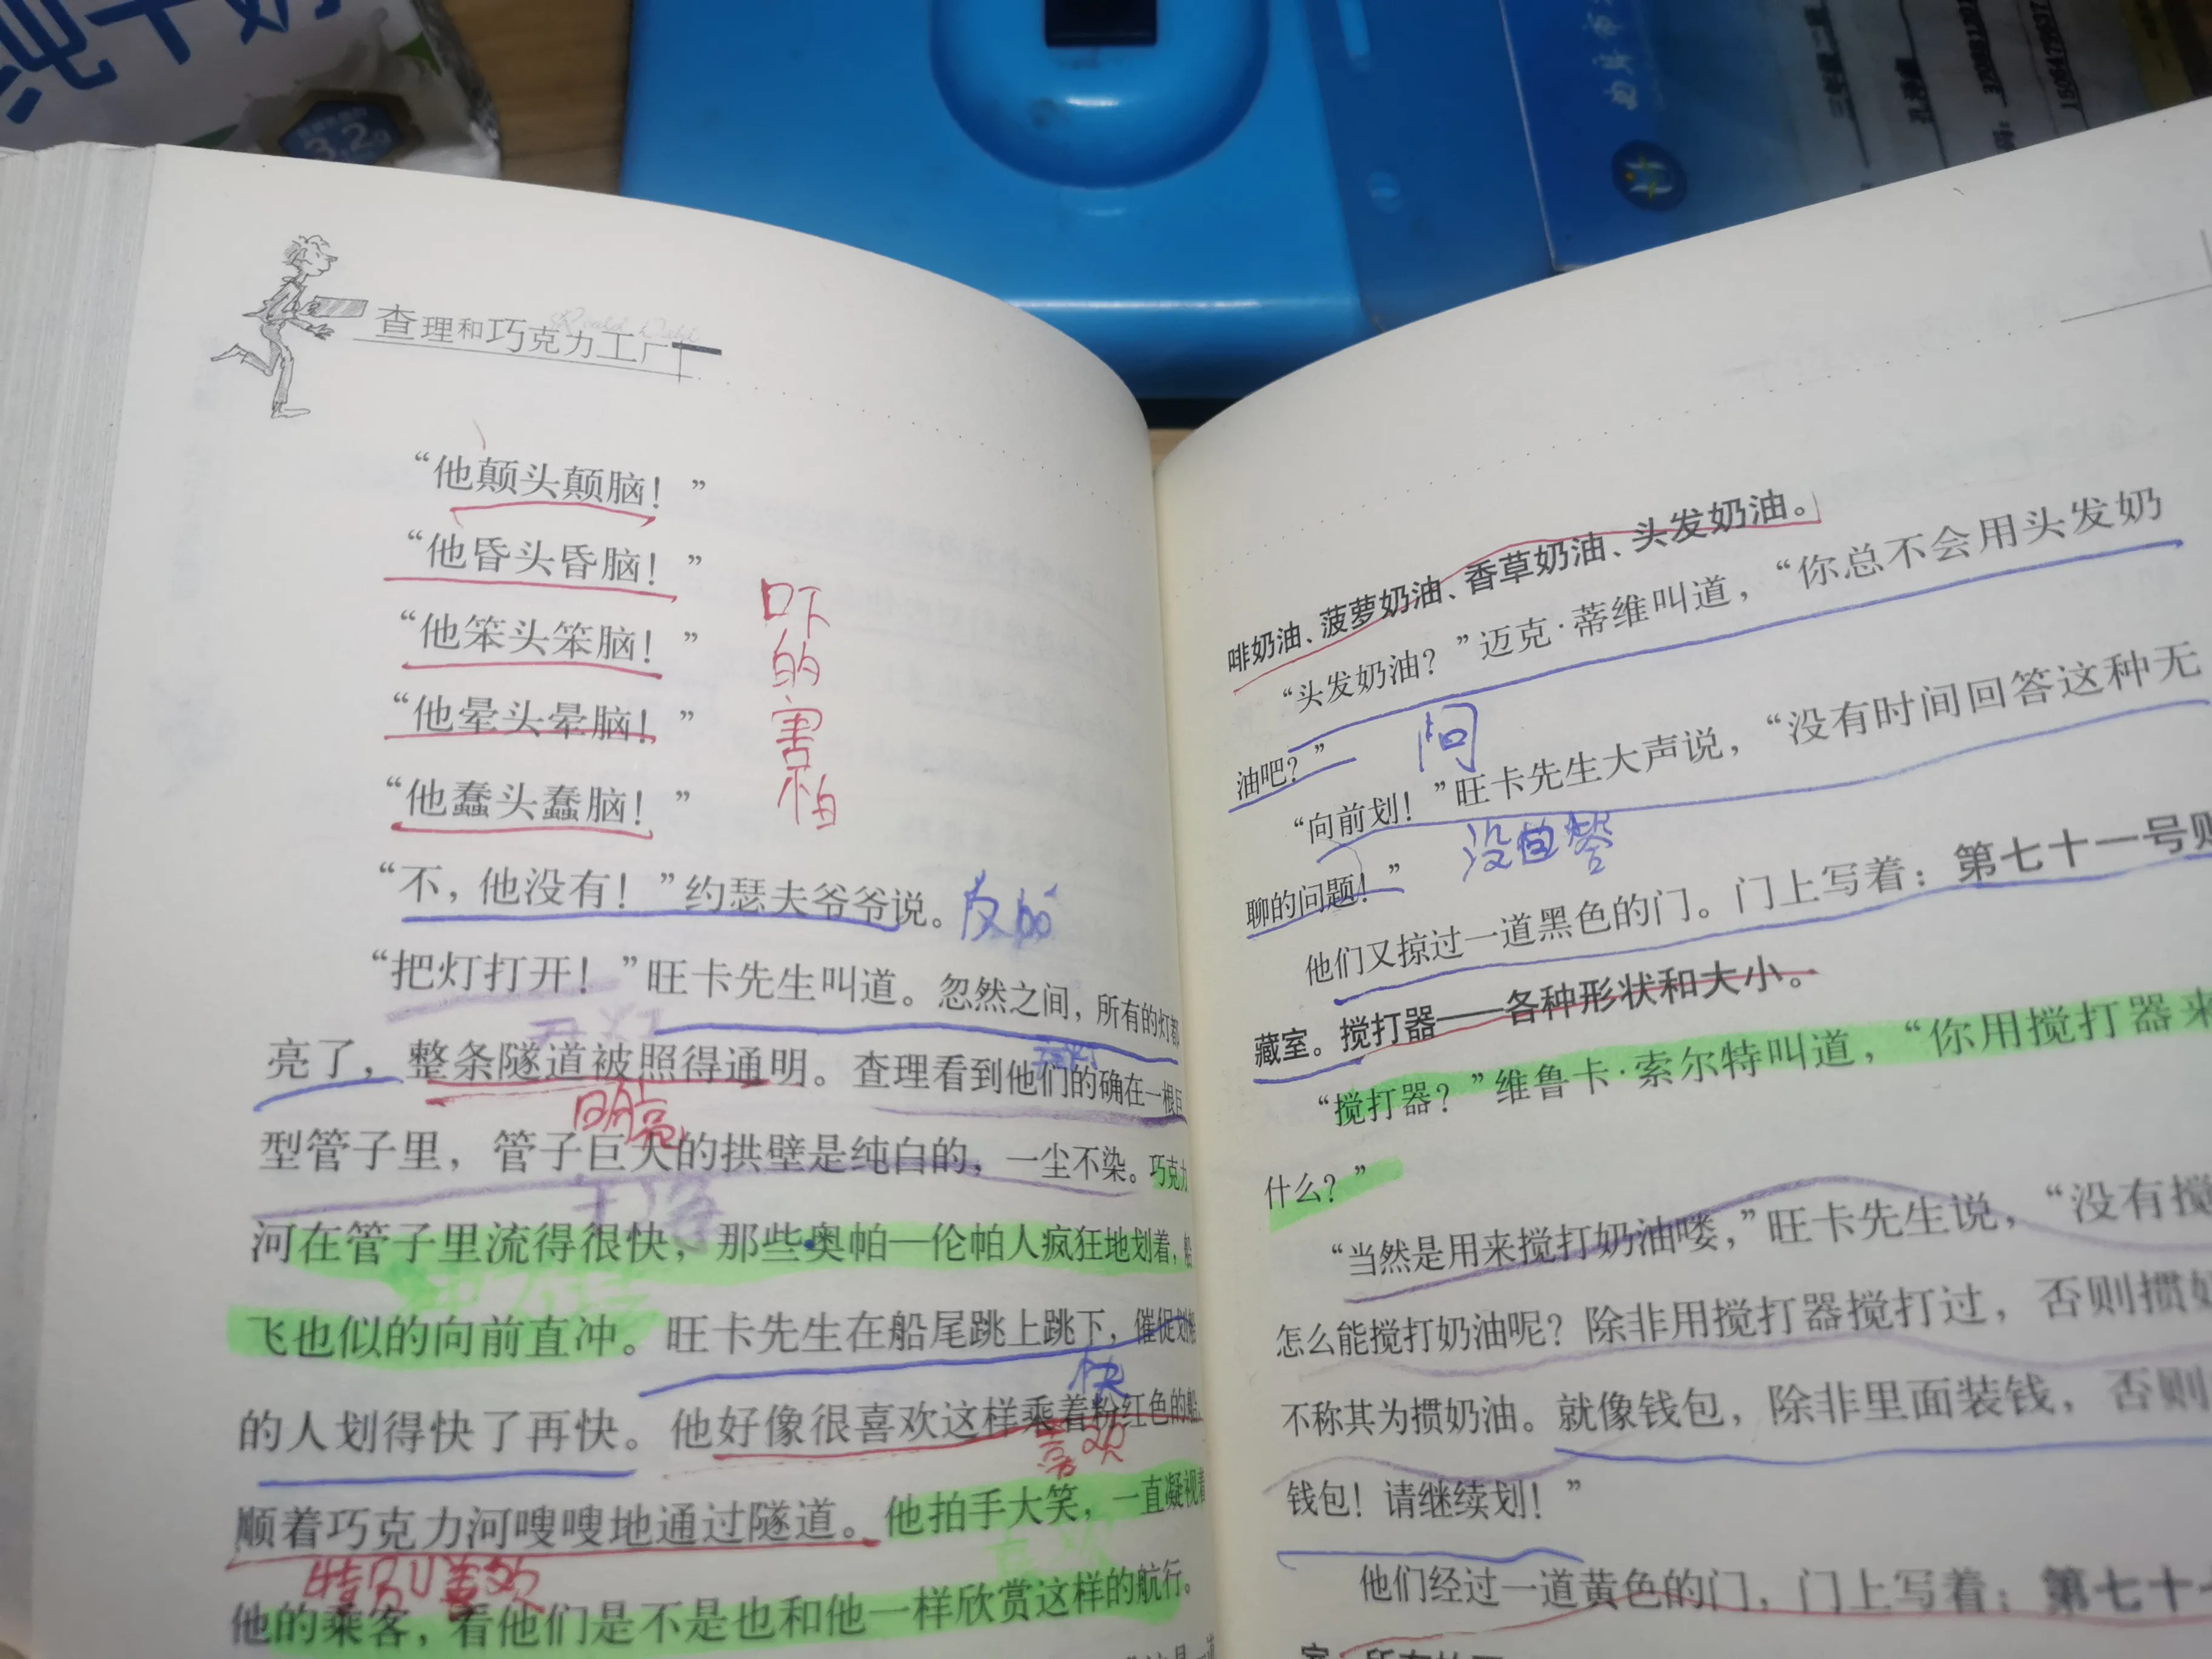 3.2g
查理和巧克力工厂
“他颠头颠脑！”
“他昏头昏脑！”
“他笨头笨脑！”
吓的害怕
“他晕头晕脑！”
“他蠢头蠢脑！”
“不，他没有！”约瑟夫爷爷说。
“把灯打开！”旺卡先生叫道。忽然之间，所有的灯都
开灯
亮了，整条隧道被照得通明。查理看到他们的确在一根巨
明亮
型管子里，管子巨大的拱壁是纯白的，一尘不染。巧克力
干净
河在管子里流得很快，那些奥帕—伦帕人疯狂地划着，船
飞也似的向前直冲。旺卡先生在船尾跳上跳下，催促划船
快
的人划得快了再快。他好像很喜欢这样乘着粉红色的船
喜欢
顺着巧克力河嗖嗖地通过隧道。他拍手大笑，一直凝视着
特别喜欢
他的乘客，看他们是不是也和他一样欣赏这样的航行。
啡奶油、菠萝奶油、香草奶油、头发奶油。
“头发奶油？”迈克·蒂维叫道，“你总不会用头发奶
油吧？”
问
“向前划！”旺卡先生大声说，“没有时间回答这种无
没回答
聊的问题！”
他们又掠过一道黑色的门。门上写着：第七十一号贮
藏室。搅打器——各种形状和大小。
“搅打器？”维鲁卡·索尔特叫道，“你用搅打器来
什么？”
“当然是用来搅打奶油喽，”旺卡先生说，“没有搅
怎么能搅打奶油呢？除非用搅打器搅打过，否则掼奶
不称其为掼奶油。就像钱包，除非里面装钱，否则
钱包！请继续划！”
他们经过一道黄色的门，门上写着：第七十